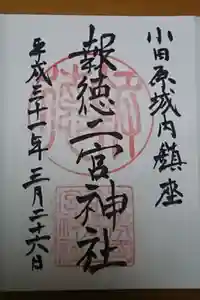 小田原城内鎮座
報徳二宮神社
平成三十一年三月二十六日